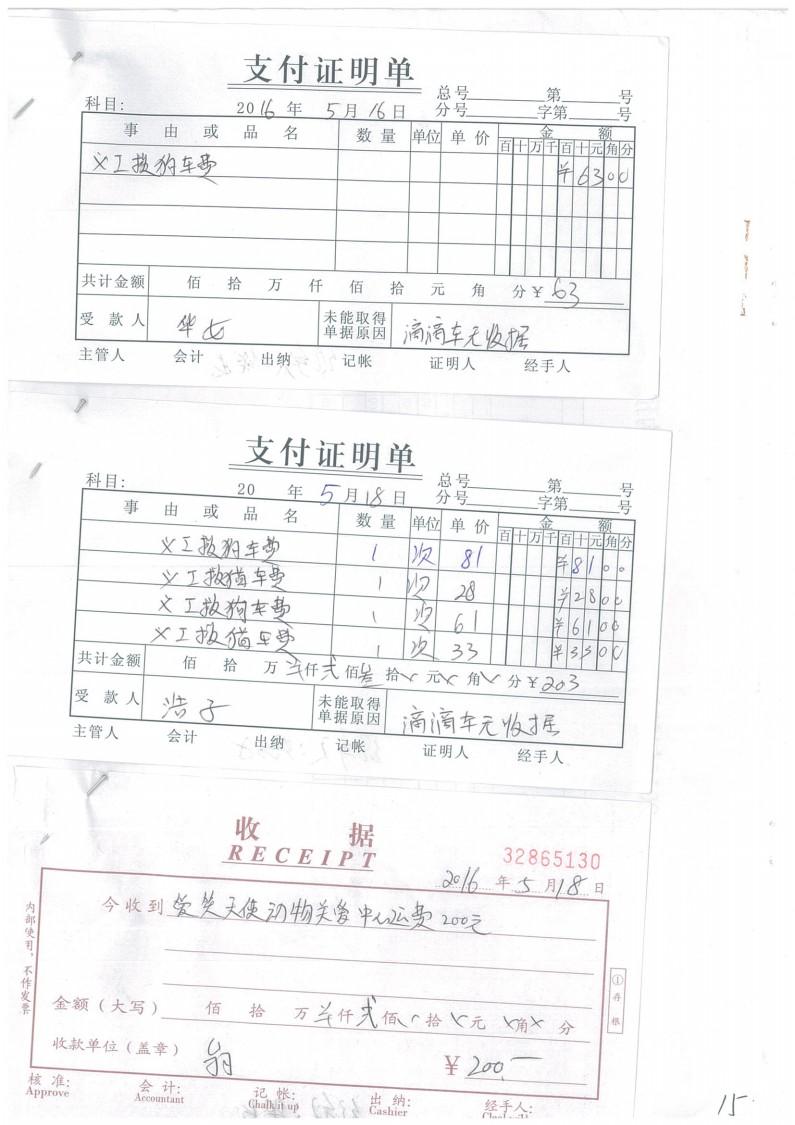 支付证明单
总号 第 号
科目: 2016年 5月16日 分号 字第 号
事由或品名 数量 单位 单价 金额
百十万千百十元角分
义工救狗车费 ¥6300
共计金额 佰 拾 万 仟 佰 拾 元 角 分¥63
受款人 华女 未能取得单据原因 滴滴车无收据
主管人 会计 出纳 记帐 证明人 经手人
支付证明单
总号 第 号
科目: 20 年 5月18日 分号 字第 号
事由或品名 数量 单位 单价 金额
百十万千百十元角分
义工救狗车费 1 次 81 ¥8100
义工救猫车费 1 次 28 ¥2800
义工救狗车费 1 次 61 ¥6100
义工救猫车费 1 次 33 ¥3300
共计金额 佰 拾 万 仟贰佰 拾 元 角 分¥203
受款人 浩子 未能取得单据原因 滴滴车无收据
主管人 会计 出纳 记帐 证明人 经手人
收据
RECEIPT
32865130
2016年5月18日
今收到 爱笑天使动物关爱中心运费200元
内部使用,不作发票
①存根
金额(大写) 佰 拾 万 仟贰佰 拾 元 角 分
收款单位(盖章) ¥200.—
核准: 会计: 记帐: 出纳: 经手人:
Approve Accountant Chalk it up Cashier
15